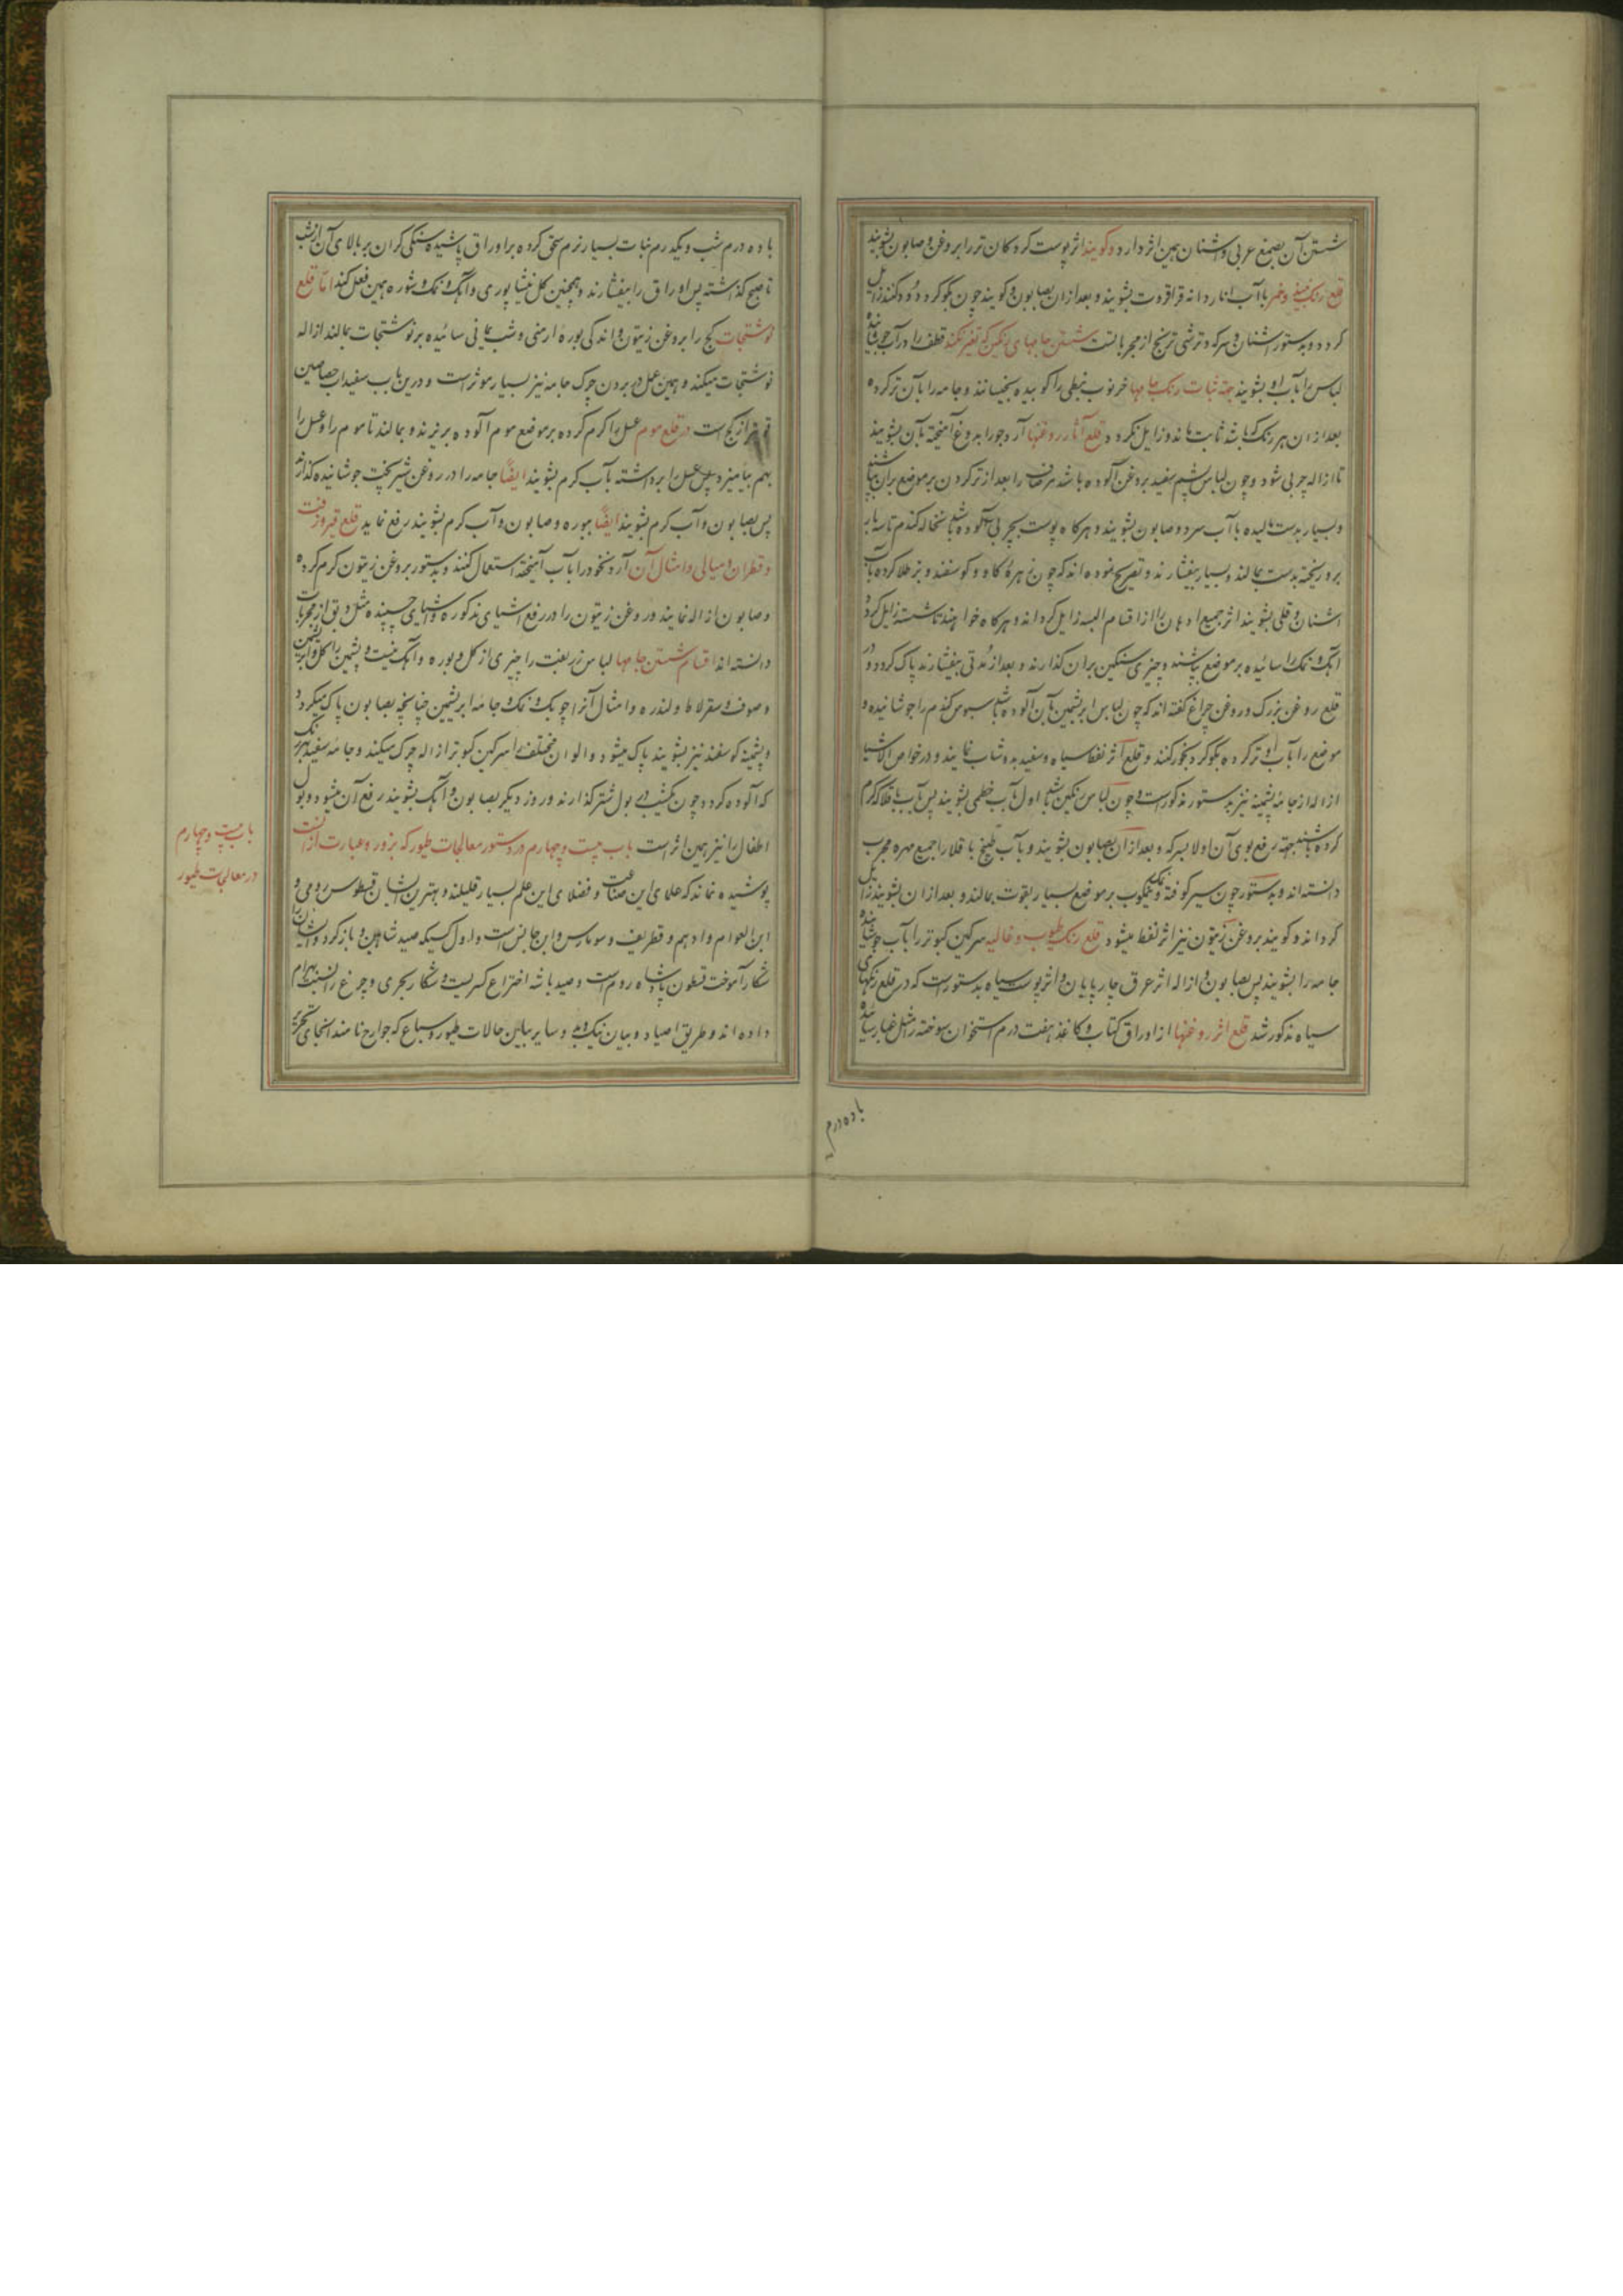 شستن آن بصمغ عربی و اشنان همین اثر دارد و کویند اثر پوست کردکان تر را بروغن و صابون بشویند
قلع رنک می و خمر باآب انار دانه و قراقروت بشویند و بعد ازان بصابون و کویند چون بکوکرد دود کنند زایل
کردد و بدستور اشنان و سرکه و ترشی ترنج از مجرباتست شستن جامهای رنکین که تغیر نکند قطف را در آب
لباس را بآب او بشویند جهة ثبات رنک جامها خرنوب نبطی را کوبیده بخیسانند و جامه را بآن تر کرده
بعد ازان هر رنک که باشد ثابت ماند و زایل نکردد قلع آثار روغنها آرد جو را بدوغ آمیخته بآن بشویند
تا ازاله چربی شود و چون لباس پشم سفید بروغن آلوده باشد را بعد از تر کردن بر موضع بران بپاشند
و بسیار بدست مالیده باآب سرد و صابون بشویند و هرکاه پوست بچربی آلوده باشد نخاله کندم تا سه بار
برو ریخته بدست بمالند و بسیار بیفشارند و تصریح نموده اند که چون زهره کاو و کوسفند و بز طلا کرده بآب
اشنان و قلی بشویند اثر جمیع ادهان را از اقسام البسه زایل کرداند و هرکاه خواهند ناشسته زایل کردد
آهک و نمک را سائیده بر موضع بپاشند و چیزی سنکین بران کذارند و بعد از مدتی بیفشارند پاک کردد و در
قلع روغن بزرک و روغن چراغ کفته اند که چون لباس ابریشمین بآن آلوده باشد سبوس کندم را جوشانیده و
موضع را بآب او تر کرده بکوکرد بخور کنند و قلع اثر نفط سیاه و سفید بدوشاب نمایند و در خواص الاشیا
ازاله از جامه پشمینه نیز بدستور مذکور است و چون لباس رنکین باشد اول بآب خطمی بشویند پس بآب باقلا که کرم
کرده باشند جهة رفع بوی آن اولا بسرکه و بعد ازان بصابون بشویند و بآب طبیخ باقلا را جمیع مهره مجرب
دانسته اند و بدستور چون سیر کوفته و نمک بر موضع بسیار بقوت بمالند و بعد ازان بشویند زایل
کرداند و کویند بروغن زیتون نیز اثر نفط میشود قلع رنک طیوب و غالیه سرکین کبوتر را بآب جوشانیده
جامه را بشویند پس بصابون و ازاله اثر عرق چارپایان و اثر پوست سیاه بدستور است که در قلع رنکهای
سیاه مذکور شد قلع اثر روغنها از اوراق کتاب و کاغذ هفت درم استخوان سوخته را مثل غبار سائیده
با ده درم
با ده درم شب و یکدرم نبات بسیار نرم سحق کرده بر اوراق پاشیده سنکی کران بر بالای آن از شب
تا صبح کذاشته پس اوراق را بیفشارند و همچنین کل نیشاپوری و آهک و نمک و شوره همین فعل کند اما قلع
نوشتجات کچ را بروغن زیتون و اندکی بوره ارمنی و شب یمانی سائیده بر نوشتجات بمالند ازاله
نوشتجات میکند و همین عمل در بردن چرک جامه نیز بسیار موثر است و درین باب سفیداب جصاصین
از کچ است در قلع موم عسل را کرم کرده بر موضع موم آلوده بریزند و بمالند تا موم را و عسل را
بهم بیامیزد پس عسل را برداشته بآب کرم بشویند ایضاً جامه را در روغن شیر بخت جوشانیده کذارند
پس بصابون و آب کرم بشویند ایضاً ببوره و صابون و آب کرم بشویند رفع نماید قلع قیر و زفت
و قطران و میالی و امثال آن آرد نخود را بآب آمیخته استعمال کنند و بدستور بروغن زیتون کرم کرده
و صابون ازاله نمایند و روغن زیتون را در رفع اشیای مذکوره و اشیای چسپنده مثل دبق از مجربات
دانسته اند اقسام شستن جامها لباس زربفت را چیزی از کل و بوره و آهک نیست و پشمین را کل و ابریشمین
و صوف و سقرلاط و لندره و امثال آنرا چوبک و نمک و جامه ابریشمین چنانچه بصابون پاک میکردد
و پشمینه کوسفند نیز بشویند پاک میشود و الوان مختلفه را سرکین کبوتر ازاله چرک میکند و جامه سفید بهر رنک
که آلوده کردد چون یکشب در بول شتر کذارند و روز دیکر بصابون و آهک بشویند رفع آن میشود و بول
اطفال را نیز همین اثر است باب بیست و چهارم در دستور معالجات طیور که بزور و عبارت ازانست
پوشیده نماند که علمای این صناعت و فضلای این علم بسیار قلیلند و بهترین ایشان قسطوس رومی و
ابن العوام و ادهم و قطریف و سومارس و ابن جانس است و اول کسیکه صید شاهین و باز کرد و ایشان را
شکار آموخت قسطون پادشاه روم است و صید باشه اختراع کسریست و شکار بحری و چرغ را نسبت بهرام
داده اند و طریق اصیاد و بیان نیک و بد و سایر بیاین حالات طیور و سباع که جوارح نامند اینجای تحریر
باب بیست و چهارم
در معالجات طیور